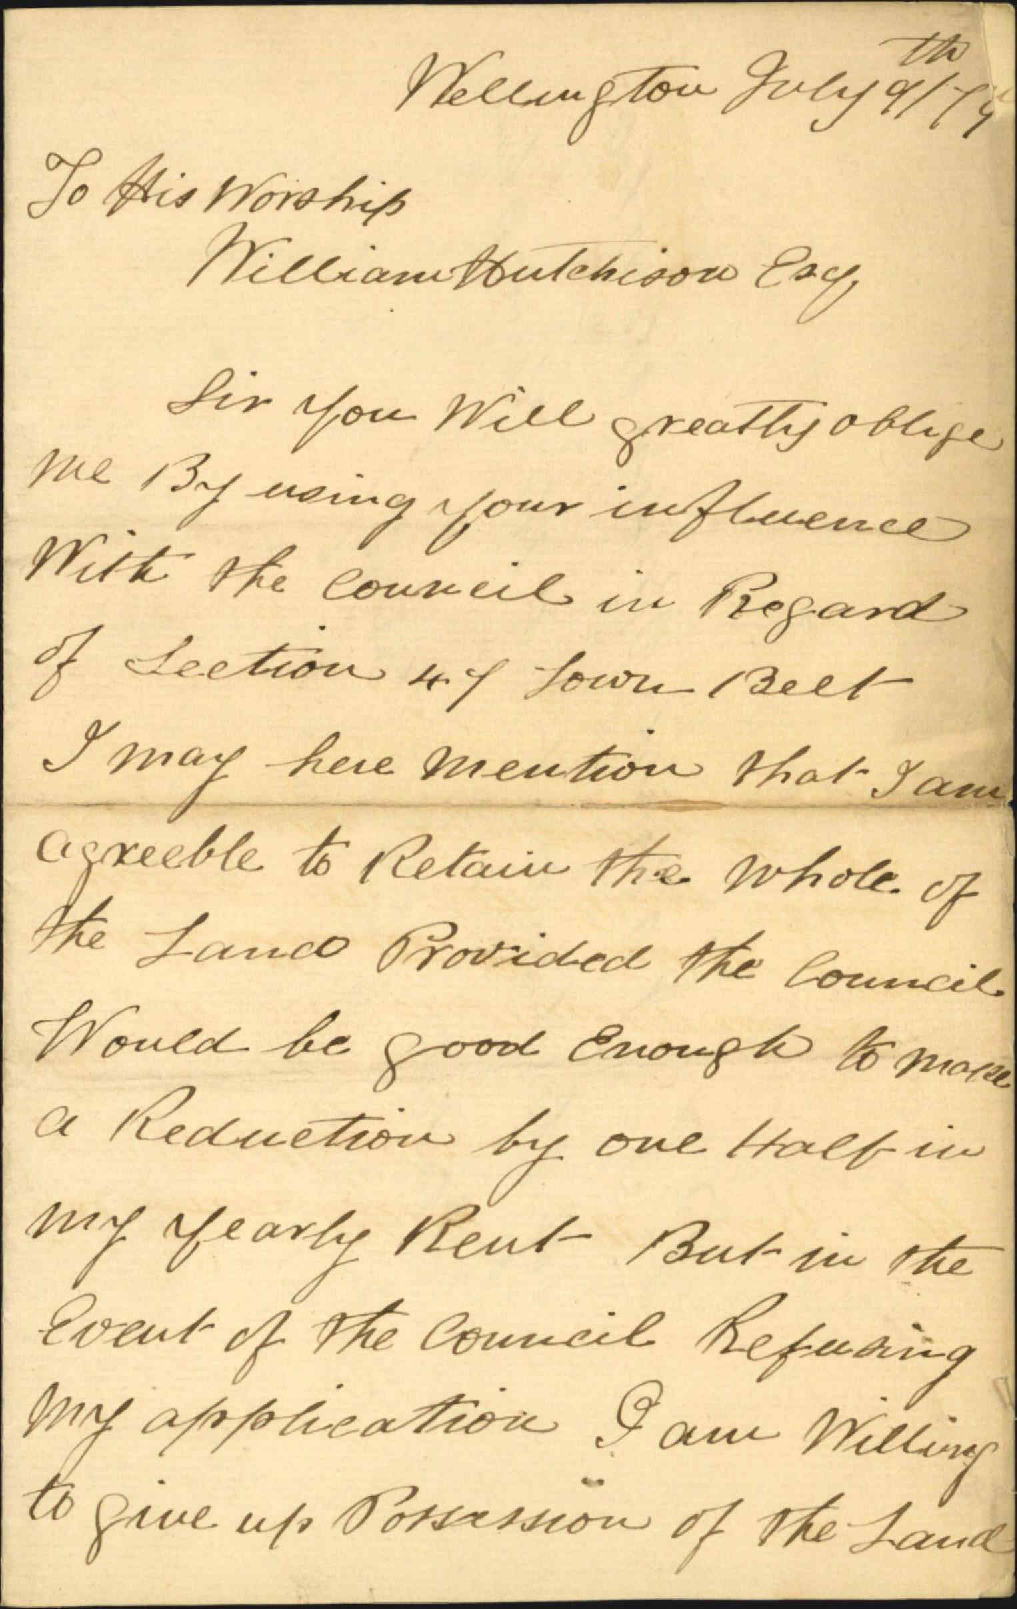 Wellington July 9th/79
To His Worship
William Hutchison Esq,
Sir you Will greattly oblige
me By using your influence
With the Council in Regard
of Section 47 Town Belt
I may here mention that I am
agreeble to Retain the whole of
the Land Provided the Council
Would be good Enough to make
a Reduction by one Half in
my yearly Rent But in the
Event of the Council Refusing
My application I am Willing
to give up Possession of the Land